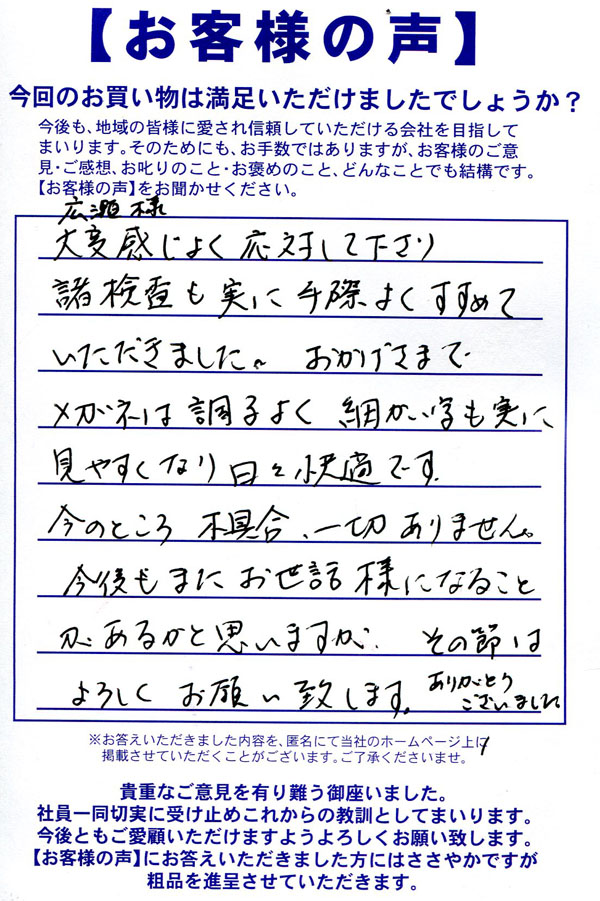 【お客様の声】
今回のお買い物は満足いただけましたでしょうか？
今後も、地域の皆様に愛され信頼していただける会社を目指して
まいります。そのためにも、お手数ではありますが、お客様のご意
見・ご感想、お叱りのこと・お褒めのこと、どんなことでも結構です。
【お客様の声】をお聞かせください。
広瀬様
大変感じよく応対して下さり
諸検査も実に手際よくすすめて
いただきました。おかげさまで
メガネは調子よく細かい字も実に
見やすくなり日々快適です。
今のところ不具合、一切ありません。
今後もまたお世話様になること
があるかと思いますが、その節は
よろしくお願い致します。ありがとう
ございました
※お答えいただきました内容を、匿名にて当社のホームページ上に
掲載させていただくことがございます。ご了承くださいませ。
貴重なご意見を有り難う御座いました。
社員一同切実に受け止めこれからの教訓としてまいります。
今後ともご愛顧いただけますようよろしくお願い致します。
【お客様の声】にお答えいただきました方にはささやかですが
粗品を進呈させていただきます。